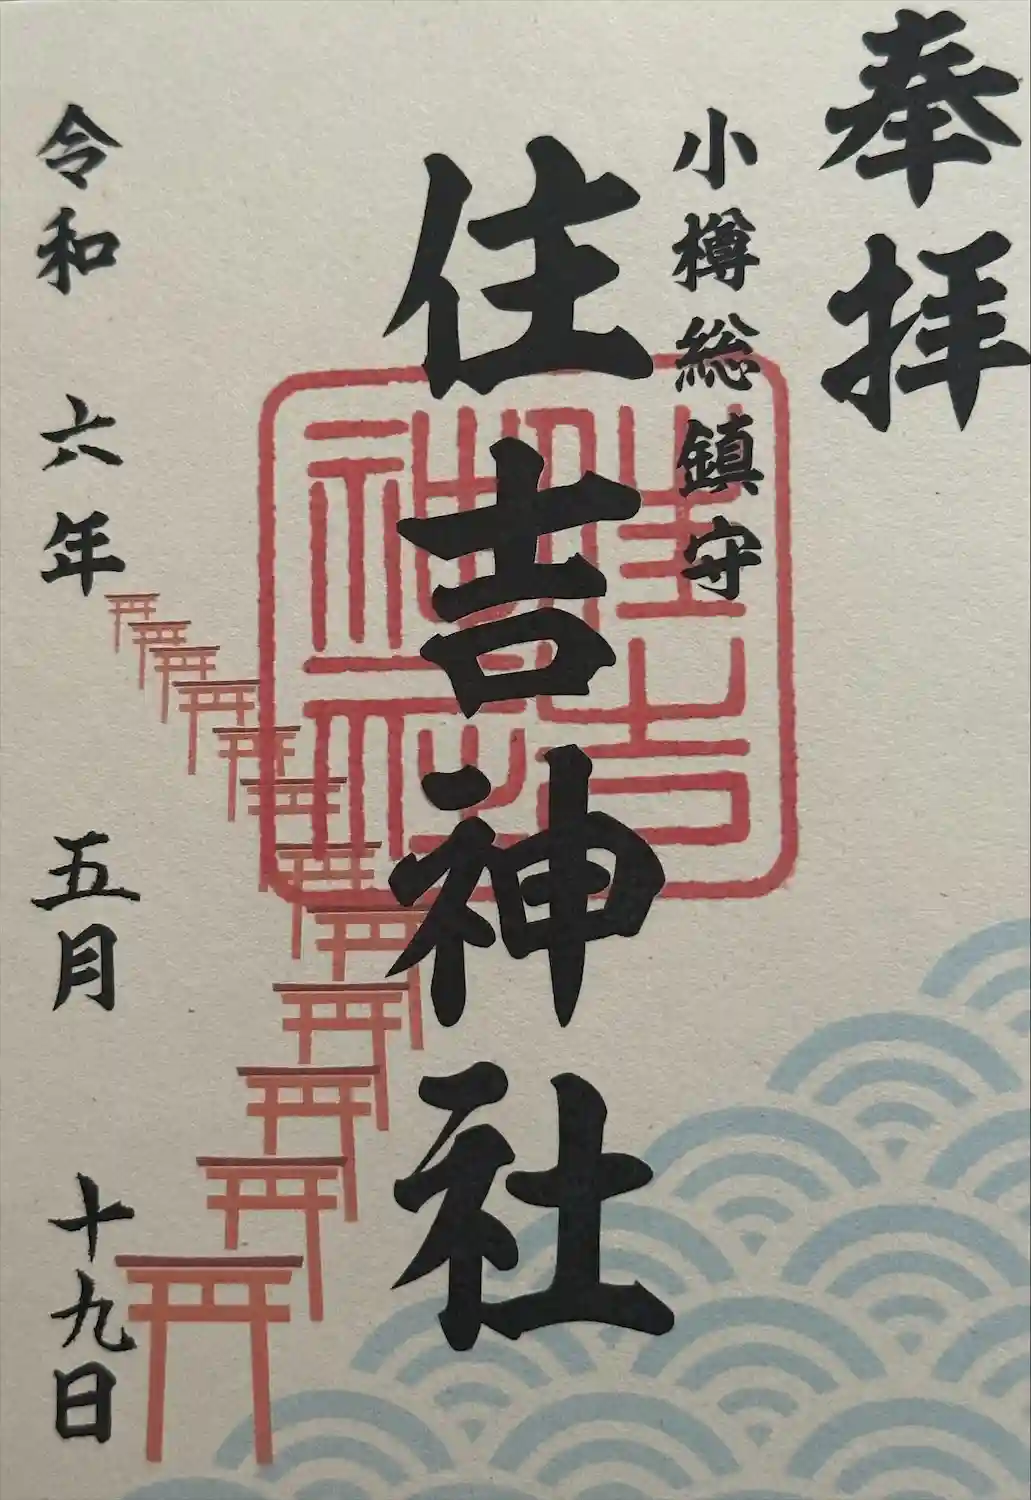 奉拝
小樽総鎮守
住吉神社
住吉
神社
令和 六年 五月 十九日